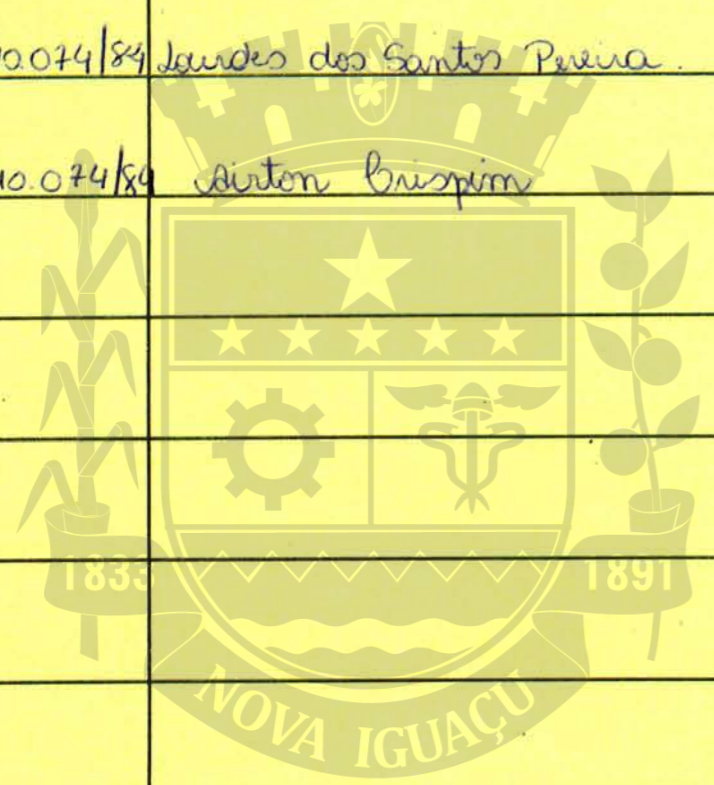 10.074/84 Lourdes dos Santos Pereira.
10.074/84 Airton Crispim
1833 1891
NOVA IGUAÇU